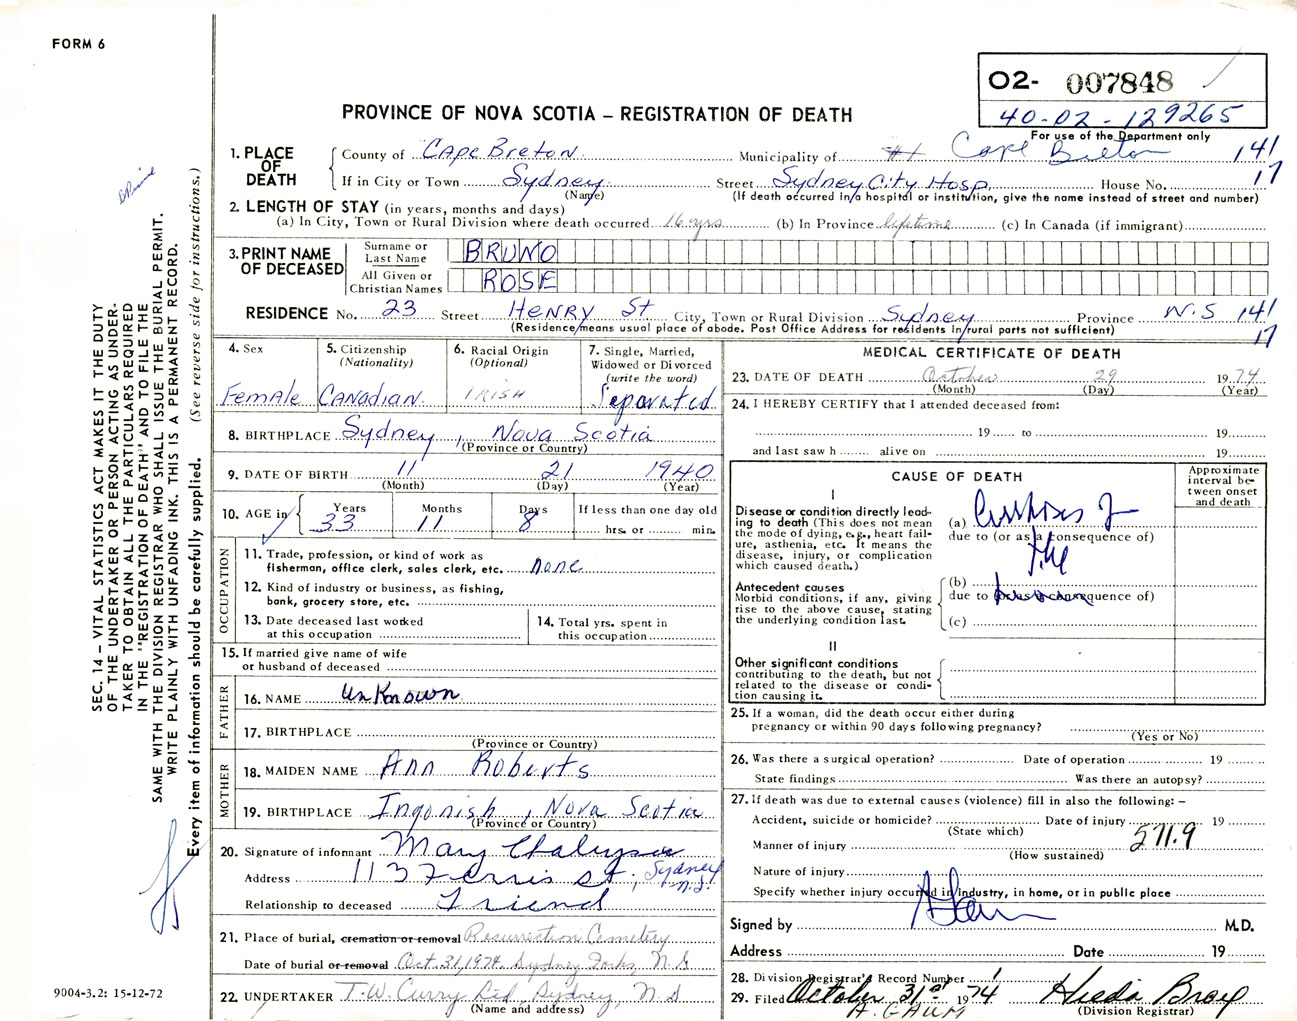 FORM 6
O2- 007848
40-02-129265
For use of the Department only
PROVINCE OF NOVA SCOTIA – REGISTRATION OF DEATH
1. PLACE OF DEATH
County of Cape Breton Municipality of #1 Cape Breton 141
If in City or Town Sydney (Name) Street Sydney City Hosp. House No. 17
(If death occurred in a hospital or institution, give the name instead of street and number)
2. LENGTH OF STAY (in years, months and days)
(a) In City, Town or Rural Division where death occurred 16 yrs (b) In Province lifetime (c) In Canada (if immigrant)
3. PRINT NAME OF DECEASED
Surname or Last Name BRUNO
All Given or Christian Names ROSE
RESIDENCE No. 23 Street HENRY St City, Town or Rural Division Sydney Province N.S 141
(Residence means usual place of abode. Post Office Address for residents in rural parts not sufficient) 17
4. Sex Female
5. Citizenship (Nationality) CANADIAN
6. Racial Origin (Optional) IRISH
7. Single, Married, Widowed or Divorced (write the word) Separated
8. BIRTHPLACE Sydney, Nova Scotia
(Province or Country)
9. DATE OF BIRTH 11 21 1940
(Month) (Day) (Year)
10. AGE in Years 33 Months 11 Days 8 If less than one day old
hrs. or min.
OCCUPATION
11. Trade, profession, or kind of work as fisherman, office clerk, sales clerk, etc. none
12. Kind of industry or business, as fishing, bank, grocery store, etc.
13. Date deceased last worked at this occupation
14. Total yrs. spent in this occupation
15. If married give name of wife or husband of deceased
FATHER
16. NAME UnKnown
17. BIRTHPLACE
(Province or Country)
MOTHER
18. MAIDEN NAME Ann Roberts
19. BIRTHPLACE Ingonish, Nova Scotia
(Province or Country)
20. Signature of informant Mary
Address 113 Ferris St, Sydney N.S.
Relationship to deceased Friend
21. Place of burial, cremation or removal Resurrection Cemetery
Date of burial or removal Oct. 31, 1974. Sydney Forks, N.S
22. UNDERTAKER T.W. Curry Ltd, Sydney, N.S
(Name and address)
MEDICAL CERTIFICATE OF DEATH
23. DATE OF DEATH October 29 1974
(Month) (Day) (Year)
24. I HEREBY CERTIFY that I attended deceased from:
19 to 19
and last saw h alive on 19
CAUSE OF DEATH
Approximate interval between onset and death
I
Disease or condition directly leading to death (This does not mean the mode of dying, e.g., heart failure, asthenia, etc. It means the disease, injury, or complication which caused death.)
(a) Cirrhosis of
due to (or as a consequence of)
the
Antecedent causes
Morbid conditions, if any, giving rise to the above cause, stating the underlying condition last.
(b)
due to (or as a consequence of)
(c)
II
Other significant conditions contributing to the death, but not related to the disease or condition causing it.
25. If a woman, did the death occur either during pregnancy or within 90 days following pregnancy?
(Yes or No)
26. Was there a surgical operation? Date of operation 19
State findings Was there an autopsy?
27. If death was due to external causes (violence) fill in also the following: –
Accident, suicide or homicide? Date of injury 19
(State which)
Manner of injury 571.9
(How sustained)
Nature of injury
Specify whether injury occurred in industry, in home, or in public place
Signed by M.D.
Address Date 19
28. Division Registrar's Record Number 1
29. Filed October 31st 1974 Hilda Bray
A. GAUM (Division Registrar)
SEC. 14 – VITAL STATISTICS ACT MAKES IT THE DUTY
OF THE UNDERTAKER OR PERSON ACTING AS UNDER-
TAKER TO OBTAIN ALL THE PARTICULARS REQUIRED
IN THE "REGISTRATION OF DEATH" AND TO FILE THE
SAME WITH THE DIVISION REGISTRAR WHO SHALL ISSUE THE BURIAL PERMIT.
WRITE PLAINLY WITH UNFADING INK. THIS IS A PERMANENT RECORD.
Every item of information should be carefully supplied. (See reverse side for instructions.)
9004-3.2: 15-12-72